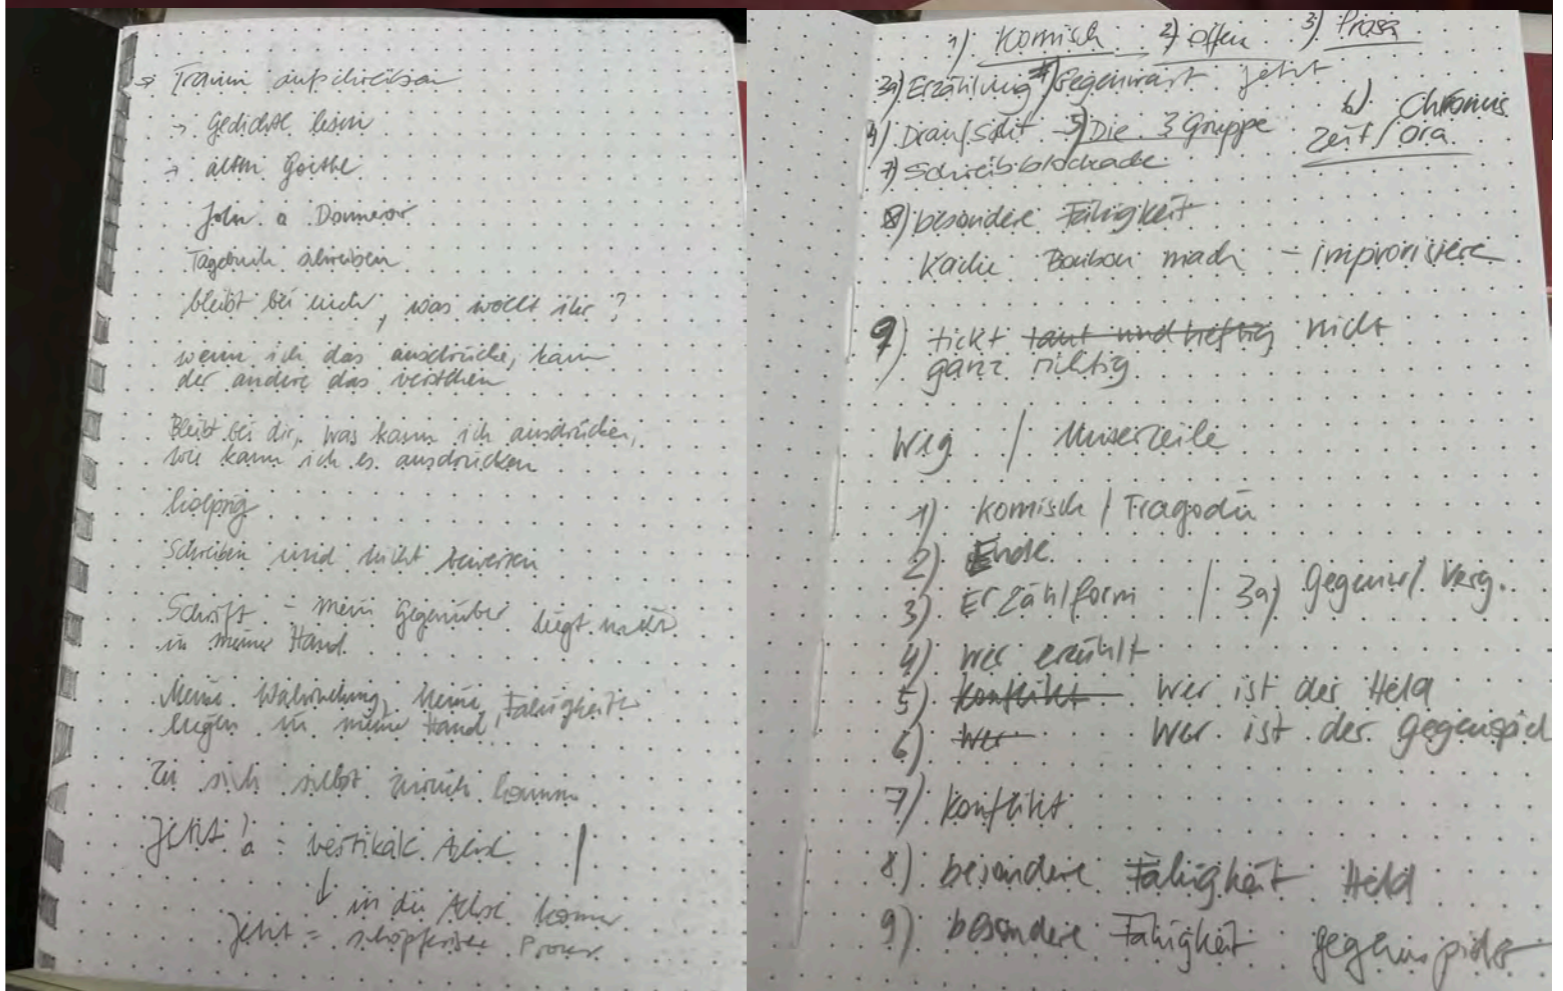 → Traum aufschreiben
→ Gedichte lesen
→ Goethe
John a
Tagebuch
bleibt bei euch, was wollt ihr?
wenn ich das ausdrücke, kann
der andere das verstehen
Bleibt bei dir, was kann ich ausdrücken,
wie kann ich es ausdrücken
holprig
Schreiben und nicht bewerten
Schrift - mein Gegenüber liegt nicht
in meiner Hand.
Meine Wahrnehmung, meine Fähigkeiten
liegen in meine Hand
Zu sich selbst zurück kommen
Jetzt = vertikale Achse
↓ in die Achse kommen
Jetzt = schöpferischer Prozess
1) Komisch 2) offen 3) Prosa
3a) Erzählung Gegenwart jetzt
4) Draufsicht 5) Die 3 Gruppe 6) Chronus
Zeit / ora
7) Schreibblockade
8) besondere Fähigkeit
Bonbon mach - improvisiere
9) tickt laut und heftig nicht
ganz richtig
Weg /
1) Komisch / Tragödie
2) Ende
3) Erzählform / 3a) Gegenw/ Verg.
4) wer erzählt
5) Konflikt wer ist der Held
6) Wer Wer ist der Gegenspiel
7) Konflikt
8) besondere Fähigkeit Held
9) besondere Fähigkeit Gegenspieler